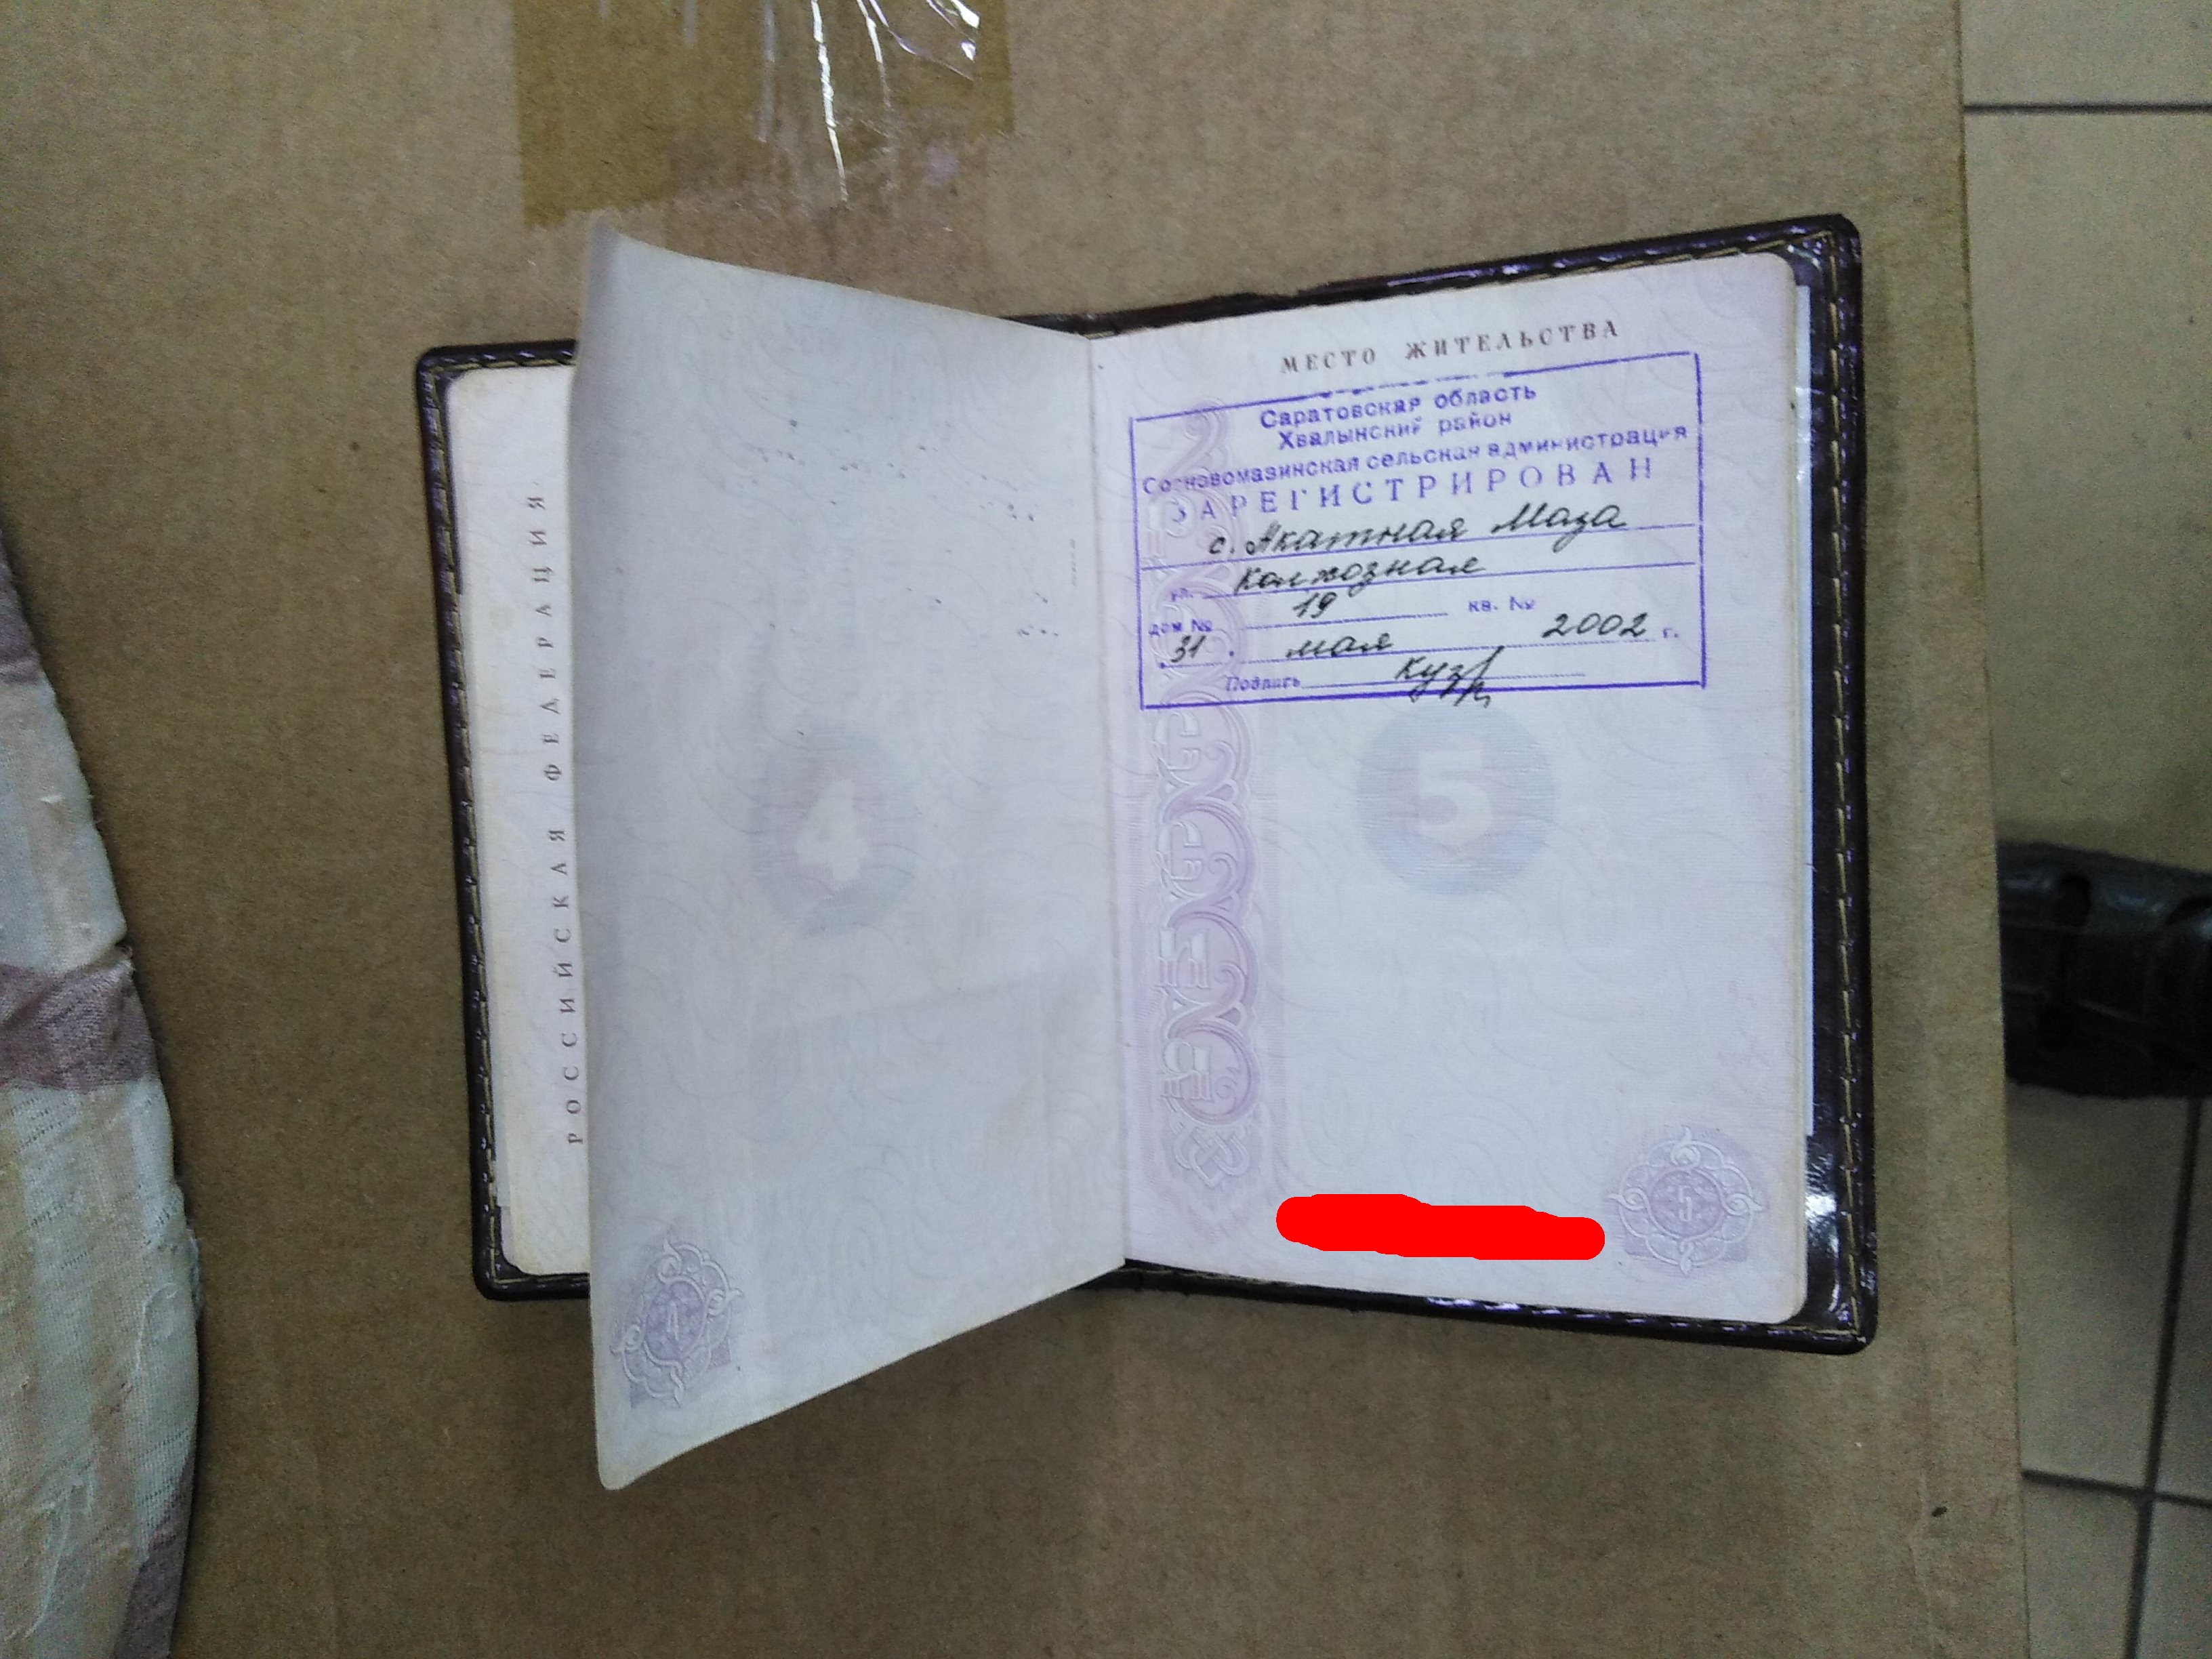 РОССИЙСКАЯ ФЕДЕРАЦИЯ
4
4
МЕСТО ЖИТЕЛЬСТВА
Саратовская область
Хвалынский район
Сосновомазинская сельская администрация
ЗАРЕГИСТРИРОВАН
с. Акатная Маза
ул. Колхозная
дом № 19 кв. №
31 мая 2002 г.
Подпись
5
5